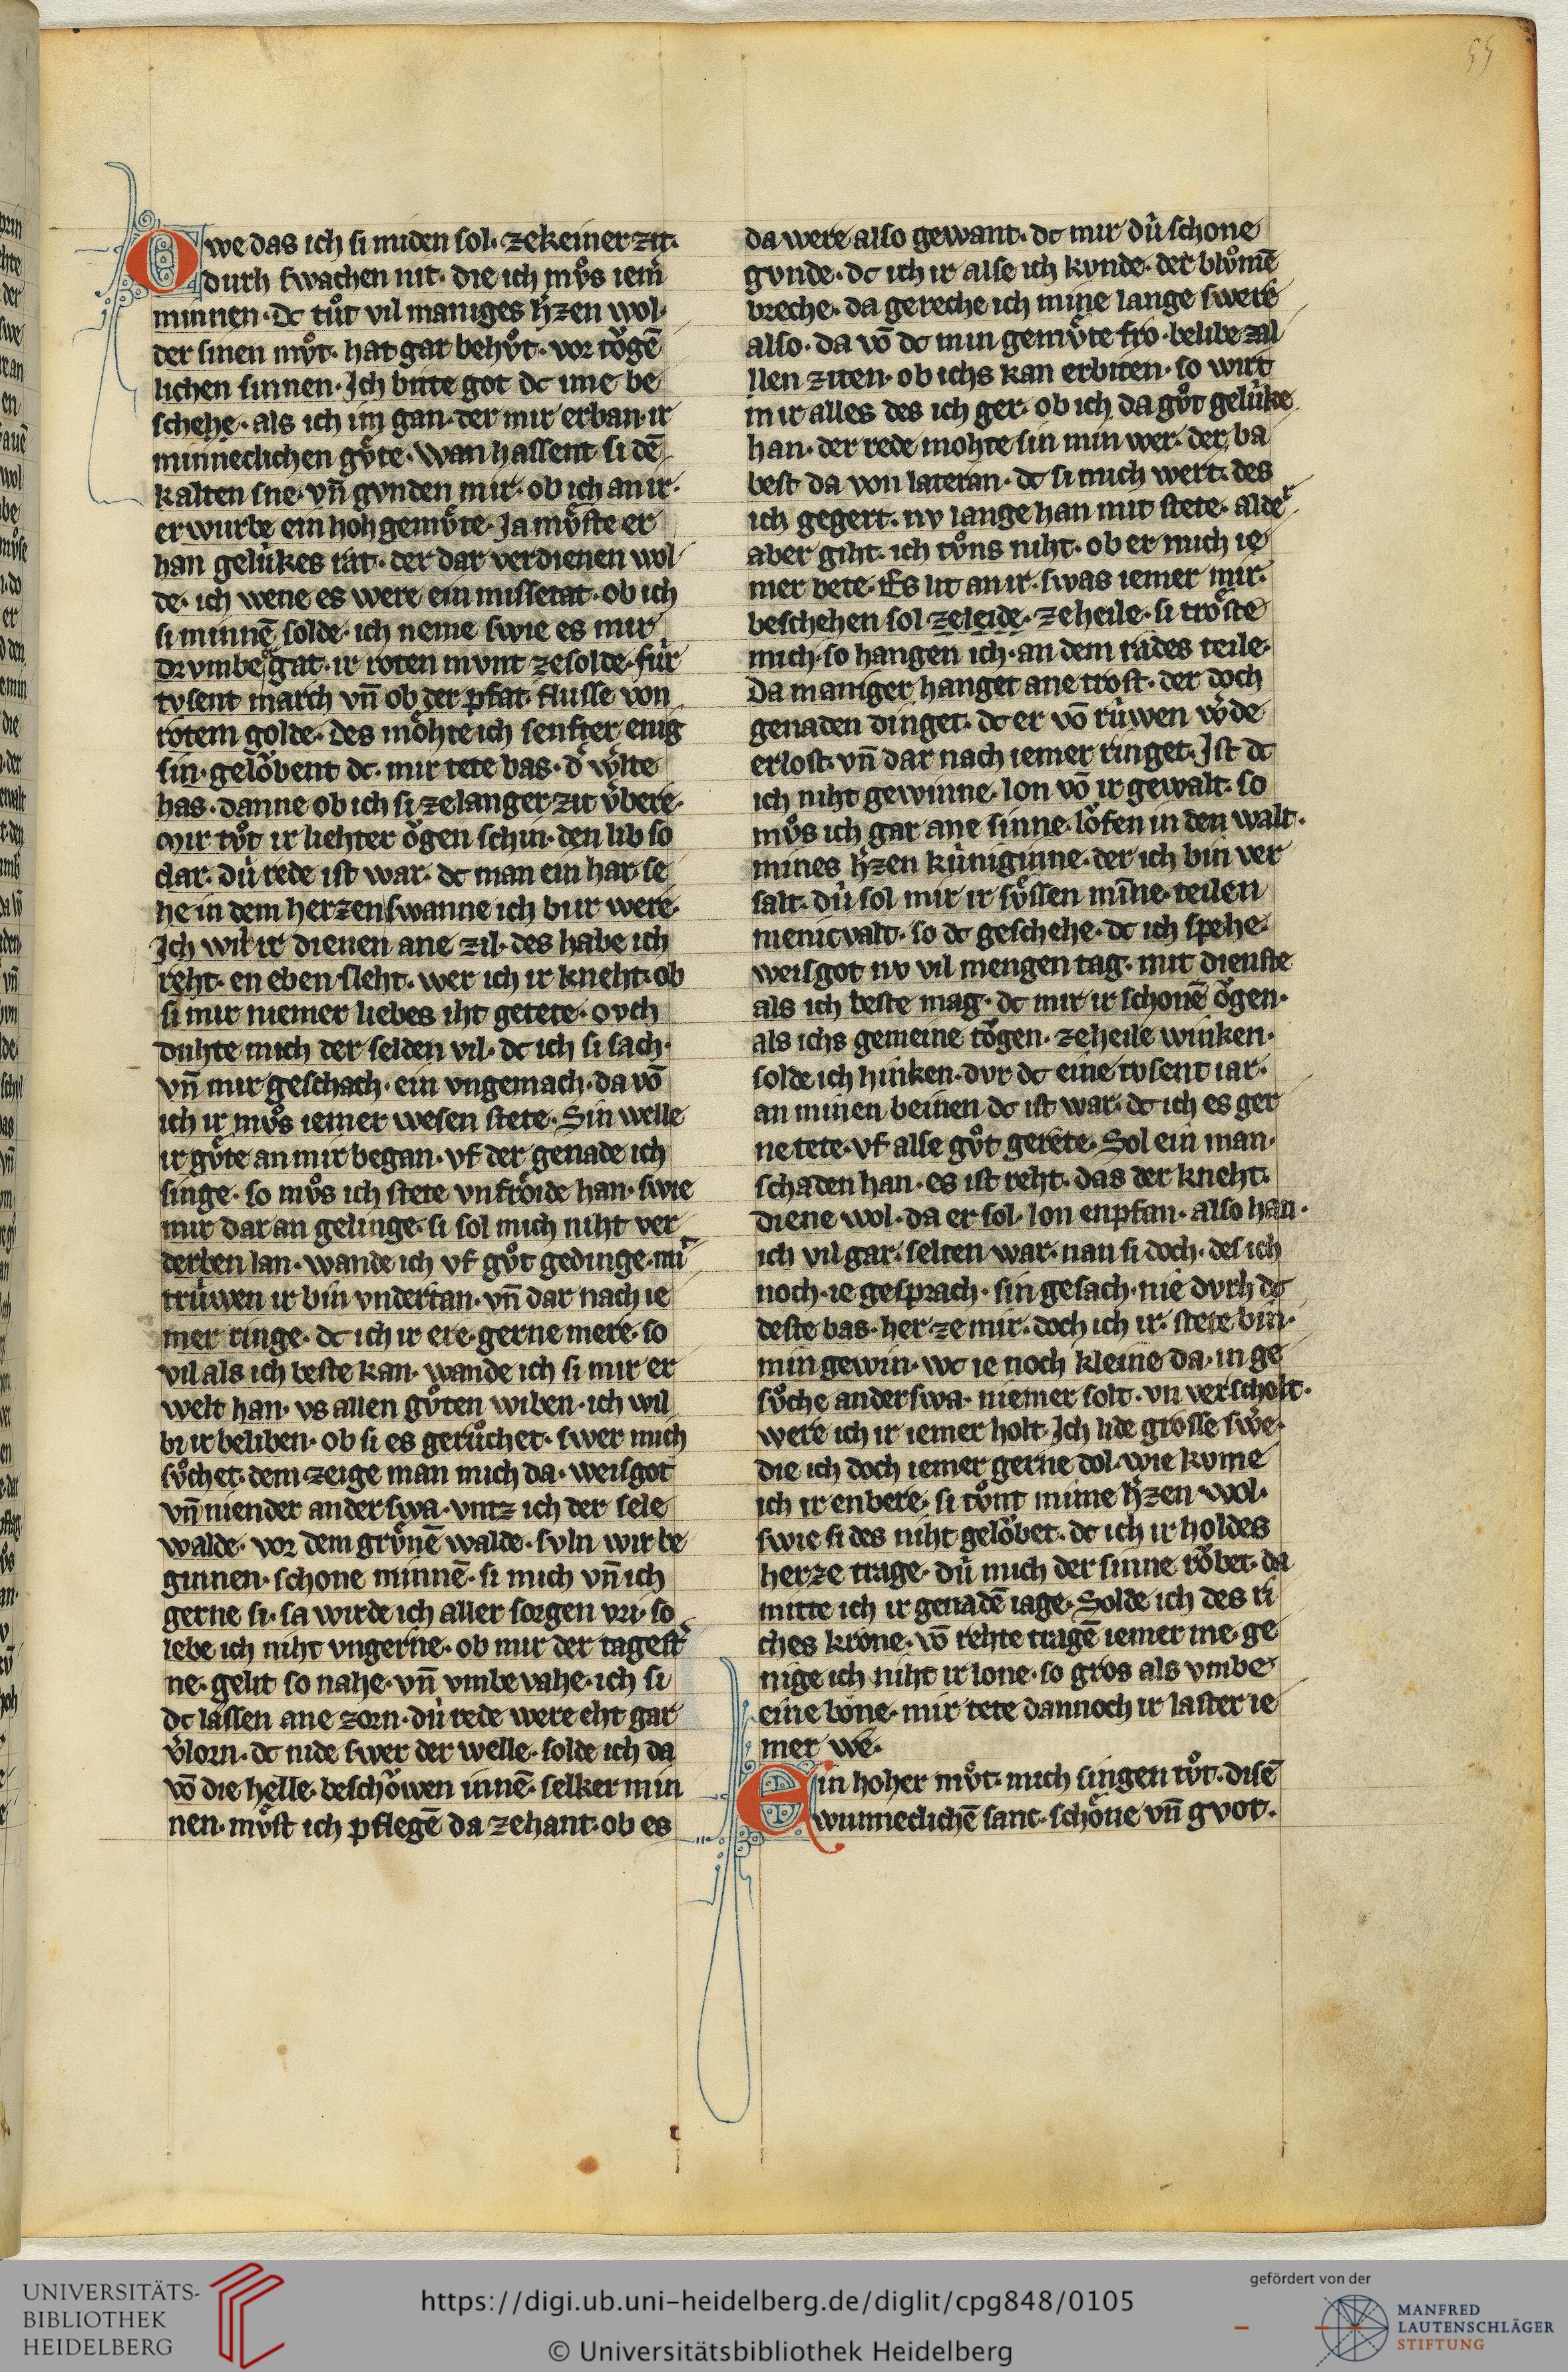 55
Owe das ich si miden sol· zekeiner zit·
durh swachen nit· die ich mvͦs iem̄
minnen· dc tuͦt vil maniges h̄zen wol·
der sinen mvͦt· hat gar behvͦt· vor toͮgē
lichen sinnen· Ich bitte got dc ime be
schehe· als ich im gan· der mir erban· ir
minneclichen gvͤte· wan hassent si dē
kalten sne· vn̄ gvnden mir· ob ich an ir·
erwurbe ein hohgemvͤte· Ja mvͤste er
han gelúkes rat· der dar verdienen wol
de· ich wene es were ein missetat· ob ich
si minnē solde· ich neme swie es mir
drvmbe gat· ir roten mvnt zesolde· fúr
tvsent march vn̄ ob der pfat· flusse von
rotem golde· des moͤhte ich senfter enig
sin· geloͮbent dc· mir tete bas· d̄ wͤlte
has· danne ob ich si zelanger zit v̄bere·
Mir tvͦt ir liehter oͮgen schin· den lib so
clar· dú rede ist war· dc man ein har· se
he in dem herzen swanne ich bur were·
Ich wil ir dienen ane zil· des habe ich
reht· en eben sleht· wer ich ir kneht· ob
si mir niemer liebes iht getete· ovch
duhte mich der selden vil· dc ich si sach·
vn̄ mir geschach· ein vngemach· da vō
ich ir mvͦs iemer wesen stete· Sin welle
ir gvͤte an mir began· vf der genade ich
singe· so mvͦs ich stete vnfroͤide han· swie
mir dar an gelinge· si sol mich niht ver
derben lan· wande ich vf gvͦt gedinge· mī
trúwen ir bin vndertan· vn̄ dar nach ie
mer ringe· dc ich ir ere· gerne mere· so
vil als ich beste kan· wande ich si mir er
welt han· vs allen gvͦten wiben· ich wil
bi ir beliben· ob si es gerůchet· swer mich
svͦchet· dem zeige man mich da· weisgot
vn̄ niender anderswa· vntz ich der sele
walde· vor dem grvͤnē walde· svln wir be
ginnen· schone minnē· si mich vn̄ ich
gerne si· sa wirde ich aller sorgen vri· so
lebe ich niht vngerne· ob mir der tagest̄
ne· gelit so nahe· vn̄ vmbevahe· ich si
dc lassen ane zorn· dú rede were eht gar
v̄lorn· dc nide swer der welle· solde ich da
vō die helle· beschoͮwen innē· selker min
nen· mvͤst ich pflegē da zehant· ob es
da were also gewant· dc mir dú schone
gvnde· dc ich ir alse ich kvnde· der blvͦmē
breche· da gereche ich mine lange swere
also· da vō dc min gemvͤte fro· belibe zal
llen ziten· ob ichs kan erbiten· so wirt
mir alles des ich ger· ob ich da gvͦt gelúke
han· der rede mohte sin min wer· der ba
best da von lateran· dc si mich wert· des
ich gegert· nv lange han mit stete· aldeˀ
aber giht· ich tvͦns niht· ob er mich ie
mer bete· Es lit an ir· swas iemer mir·
beschehen sol zeleide· zeheile· si troͤste
mich· so hangen ich· an dem rades teile·
Da maniger hanget ane trost· der doch
genaden dinget· dc er vō rúwen wͤde
erlost· vn̄ dar nach iemer ringet· Ist dc
ich niht gewinne· lon vō ir gewalt· so
mvͦs ich gar ane sinne· loͮfen in den walt·
mines h̄zen kúniginne· der ich bin ver
salt· dú sol mir ir svͤssen mīne· teilen
menicvalt· so dc geschehe· dc ich spehe·
weisgot nv vil mengen tag· mit dienste
als ich beste mag· dc mir ir schonē oͮgen·
als ichs gemeine toͮgen· zeheile winken·
solde ich hinken· dvr dc eine tvsent iar·
an minen beinen dc ist war· dc ich es ger
ne tete· vf alse gvͦt gerete· Sol ein man·
schaden han· es ist reht· das der kneht·
diene wol· da er sol· lon enpfan· also han·
ich vil gar· selten war· nan si doch· des ich
noch· ie gesprach· sin gesach· nie dvrh dc
deste bas· her ze mir· doch ich ir· stete bin·
min gewin· wc ie noch kleine da· in ge
svͦche anderswa· niemer solt· vn verscholt·
were ich ir iemer holt· Ich lide grosse sw̄e·
die ich doch iemer gerne dol· wie kvme
ich ir enbere· si tvͦnt mime h̄zen wol·
swie si des niht geloͮbet· dc ich ir holdes
herze trage· dú mich der sinne roͮbet· da
mitte ich ir genadē iage· Solde ich des ri
ches krone· vō rehte tragē iemer me· ge
nige ich niht ir lone· so gros als vmbe
eine bone· mir tete dannoch ir laster ie
mer we·
Ein hoher mvͦt· mich singen tvͦt· disē
wunneclichē sanc· schoͤne vn̄ gvot·
UNIVERSITÄTS-
BIBLIOTHEK
HEIDELBERG
https://digi.ub.uni-heidelberg.de/diglit/cpg848/0105
© Universitätsbibliothek Heidelberg
gefördert von der
MANFRED
LAUTENSCHLÄGER
STIFTUNG